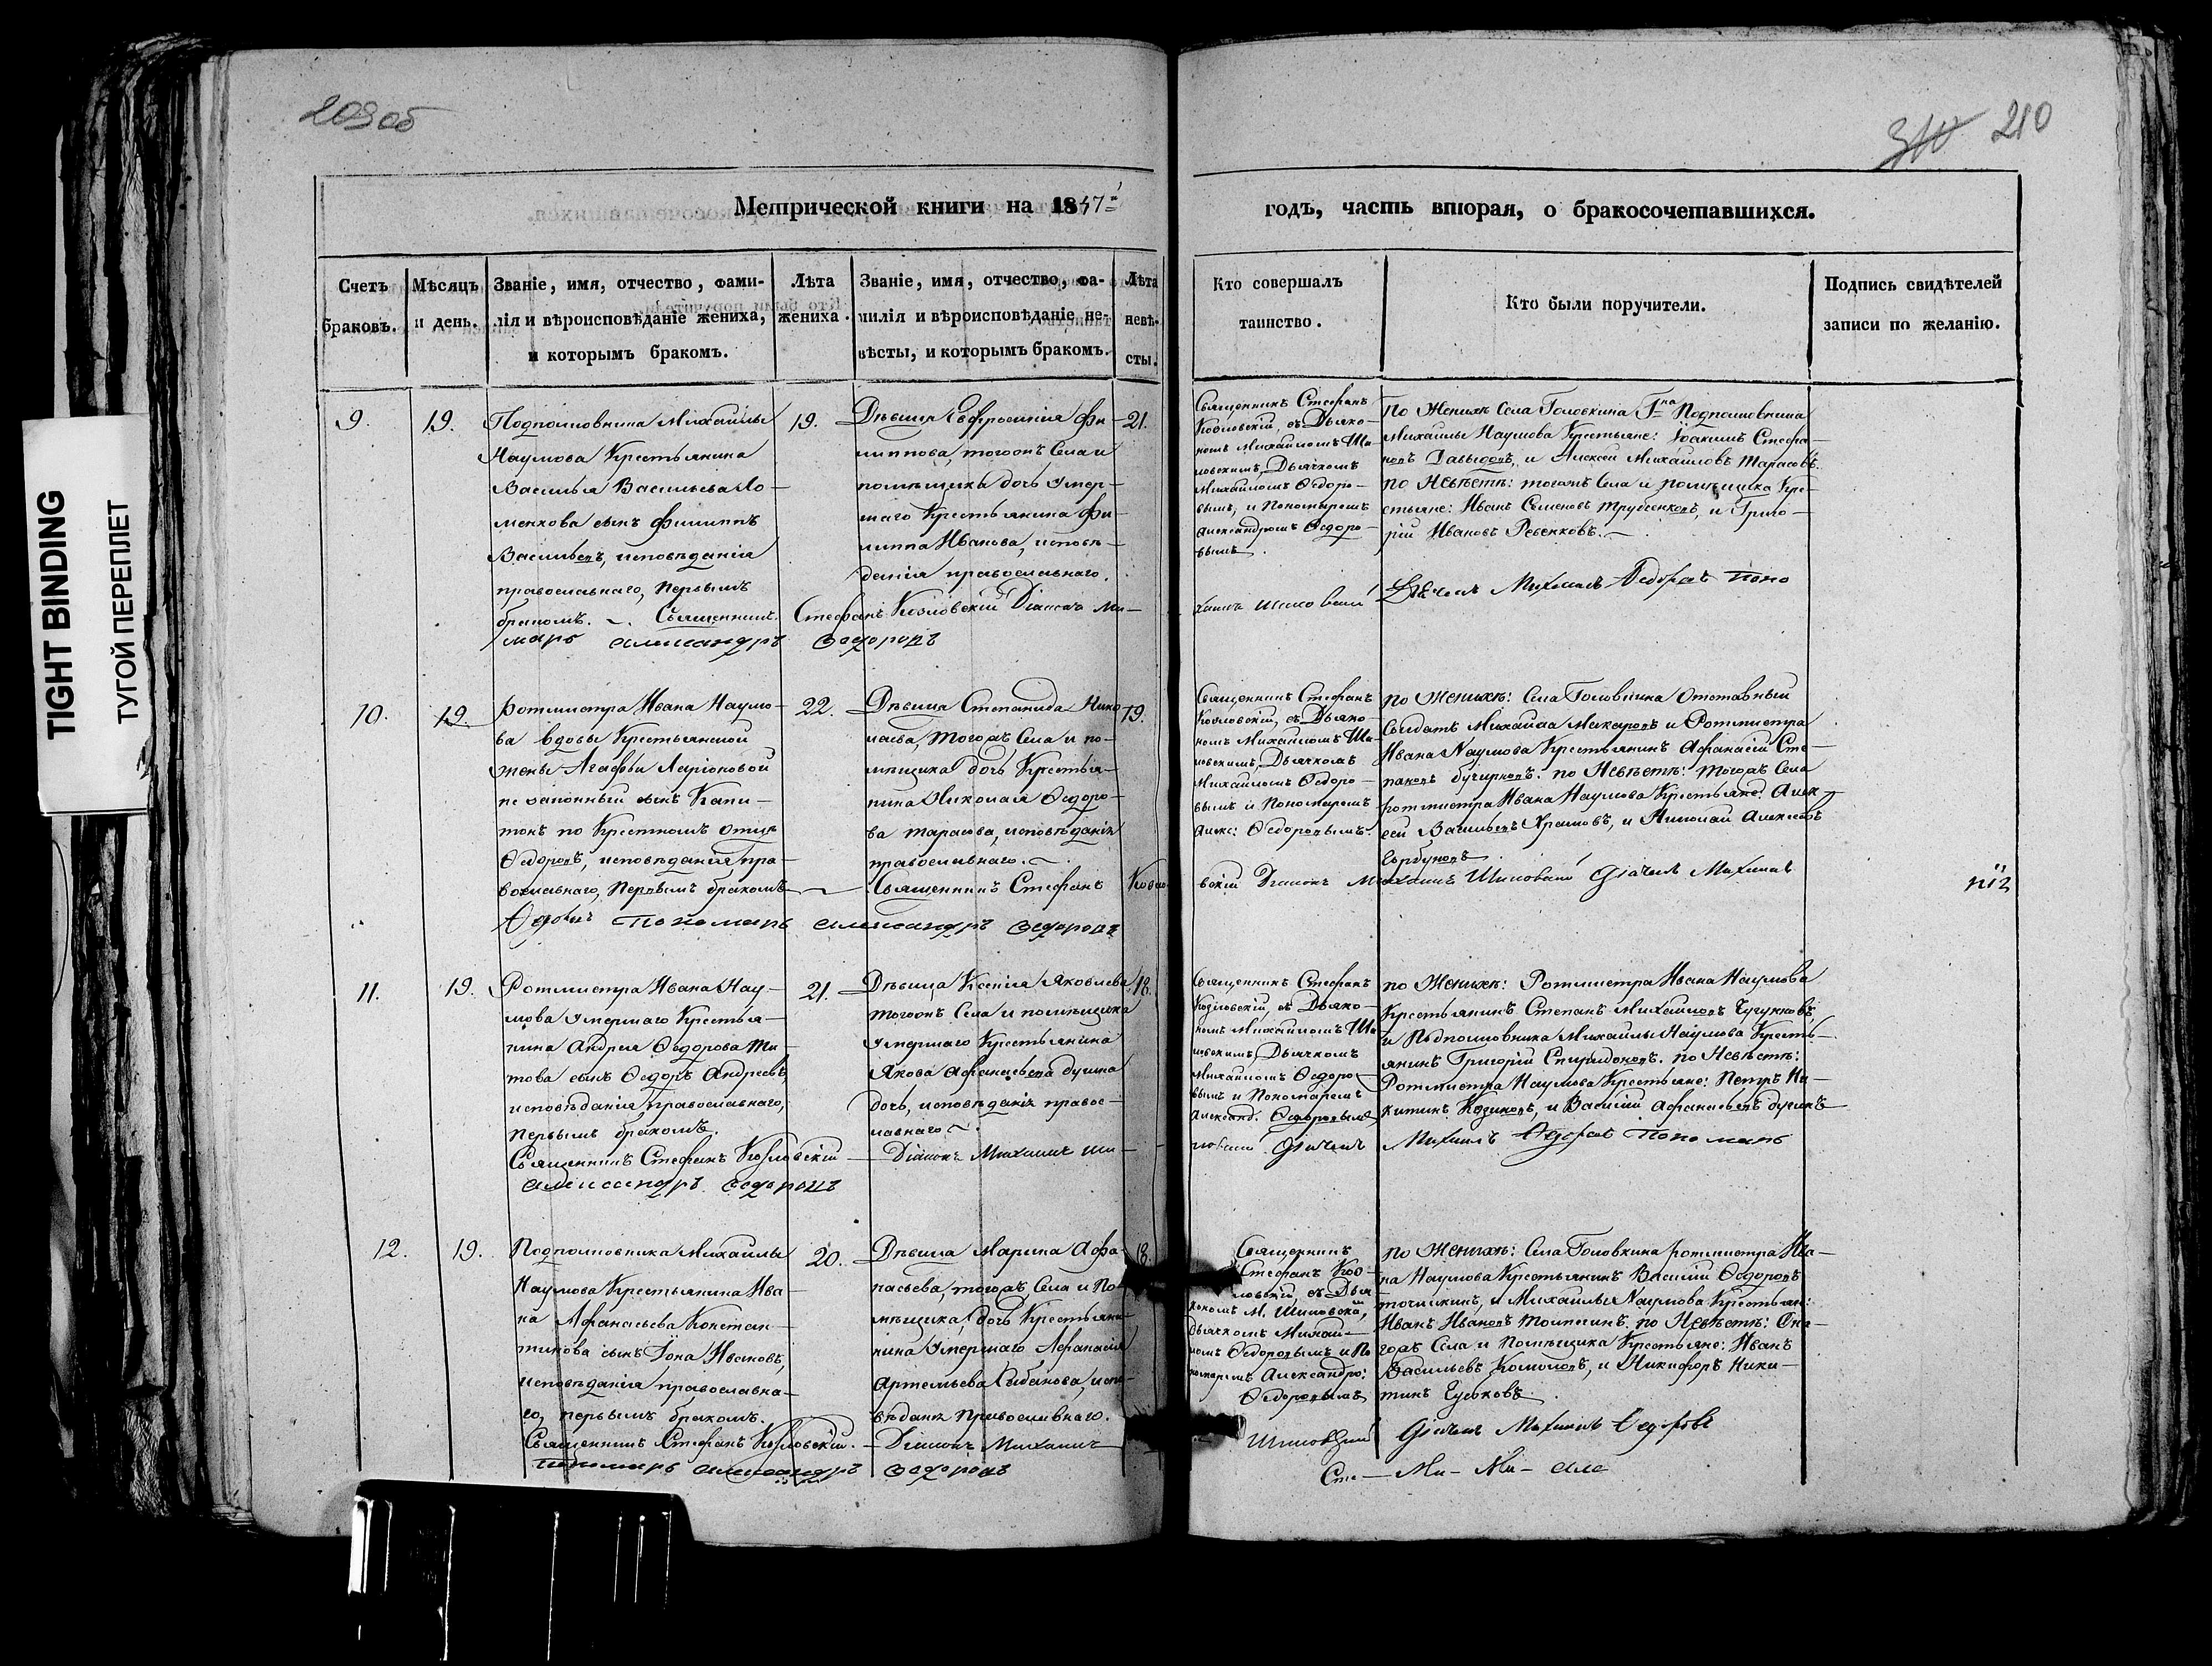 209об
310 210
TIGHT BINDING
ТУГОЙ ПЕРЕПЛЕТ
Метрической книги на 1847й
годъ, часть вторая, о бракосочетавшихся.
Счетъ браковъ.
Мѣсяцъ и день.
Званіе, имя, отчество, фами-
лія и вѣроисповѣданіе жениха,
и которымъ бракомъ.
Лѣта
жениха.
Званіе, имя, отчество, фа-
милія и вѣроисповѣданіе не-
вѣсты, и которымъ бракомъ.
Лѣта
невѣ-
сты.
Кто совершалъ
таинство.
Кто были поручители.
Подпись свидѣтелей
записи по желанію.
9.
19.
Подполковника Михайлы
Наумова Крестьянина
Василья Васильева
сынъ Филиппъ
Васильевъ, исповѣданія
православнаго, первымъ
бракомъ.
19.
Дѣвица Евфросинія Фи-
липпова, тогожъ Села и
помѣщика дочь умер-
шаго Крестьянина Фи-
липпа Иванова, исповѣ-
данія православнаго.
21.
Священникъ Стефанъ
Козловскій, съ Дьяко-
номъ Михаиломъ Ши-
ловскимъ, Дьячкомъ
Михаиломъ Ѳедоро-
вымъ, и Пономаремъ
Александромъ Ѳедоро-
вымъ.
По Женихѣ Села Головкина Гна Подполковника
Михайлы Наумова Крестьяне: Іоакимъ Стефа-
новъ Давыдовъ, и Алексей Михайловъ Тарасовъ.
по Невѣстѣ: тогожъ Села и помѣщика Кре-
стьяне: Иванъ Семеновъ Трубенковъ, и Григо-
рій Ивановъ Ребенковъ.
Священникъ Стефанъ Козловскій Діаконъ Ми-
хаилъ Шиловскій Дьячекъ Михаилъ Ѳедоровъ Поно
марь Александръ Ѳедоровъ
10.
19.
Ротмистра Ивана Наумо-
ва вдовы Крестьянской
жены Агафьи Ларіоновой
незаконный сынъ Капи-
тонъ по Крестномъ отцѣ
Ѳедоровъ, исповѣданія пра-
вославнаго, первымъ бракомъ
22.
Дѣвица Степанида Нико
лаева, тогожъ Села и по-
мѣщика дочь Крестья-
нина Николая Ѳедоро-
ва Тарасова, исповѣданія
православнаго.
19.
Священникъ Стефанъ
Козловскій, съ Дьяко-
номъ Михаиломъ Ши-
ловскимъ, Дьячкомъ
Михаиломъ Ѳедоро-
вымъ и Пономаремъ
Алекс: Ѳедоровымъ.
по Женихѣ: Села Головкина Отставный
Солдатъ Михайла Макаровъ и Ротмистра
Ивана Наумова Крестьянинъ Афанасій Сте-
пановъ. по Невѣстѣ: тогожъ Села
ротмистра Ивана Наумова Крестьяне: Алек-
сей Васильевъ Храмовъ, и Николай Алексеевъ
Горбуновъ
Священникъ Стефанъ Козло
вскій Діаконъ Михаилъ Шиловскій Діачекъ Михаилъ
Ѳедоровъ Пономарь Александръ Ѳедоровъ
11.
19.
Ротмистра Ивана Нау-
мова умершаго Крестья-
нина Андрея Ѳедорова Ти-
това сынъ Ѳедоръ Андреевъ,
исповѣданія православнаго,
первымъ бракомъ.
21.
Дѣвица Ксенія Яковлева
тогожъ Села и помѣщика
умершаго Крестьянина
Якова Афанасьева Бушна
дочь, исповѣданія правос-
лавнаго
18.
Священникъ Стефанъ
Козловскій, съ Дьяко-
номъ Михаиломъ Ши
ловскимъ, Дьячкомъ
Михаиломъ Ѳедоро-
вымъ и Пономаремъ
Александ: Ѳедоровымъ
по Женихѣ: Ротмистра Ивана Наумова
Крестьянинъ Степанъ Михайловъ
и Подполковника Михайлы Наумова Кресть-
янинъ Григорій Спиридоновъ. по Невѣстѣ:
Ротмистра Наумова Крестьяне: Петръ Ни-
китинъ, и Василій Афанасьевъ
Священникъ Стефанъ Козловскій Діаконъ Михаилъ Ши-
ловскій Діачекъ Михаилъ Ѳедоровъ Пономарь
Александръ Ѳедоровъ
12.
19.
Подполковника Михайлы
Наумова Крестьянина Ива-
на Афанасьева Констан-
тинова сынъ Іона Ивановъ,
исповѣданія православна-
го, первымъ бракомъ.
20.
Дѣвица Марина Афа-
насьева, тогожъ Села и По-
мѣщика, дочь Крестьяни-
нина умершаго Афанасія
Артемьева Рыбакова, испо-
вѣданія Православнаго.
18.
Священникъ
Стефанъ Коз-
ловскій, съ Дья
кономъ М. Шиловскій,
дьячкомъ Михаи-
ломъ Ѳедоровымъ и По
номаремъ Александро:
Ѳедоровымъ
по Женихѣ: Села Головкина ротмистра Ива-
на Наумова Крестьянинъ Василій Ѳедоровъ
Точилкинъ, и Михайлы Наумова Крестьян:
Иванъ Ивановъ. по Невѣстѣ: Она-
гожъ Села и Помѣщика Крестьяне: Иванъ
Васильевъ, и Никифоръ Ники-
тинъ Гуськовъ.
Священникъ Стефанъ Козловскій. Діаконъ Михаилъ
Шиловскій Діачекъ Михаилъ Ѳедоровъ
пономарь Александръ Ѳедоровъ
Сте- Ми- Ми- Але